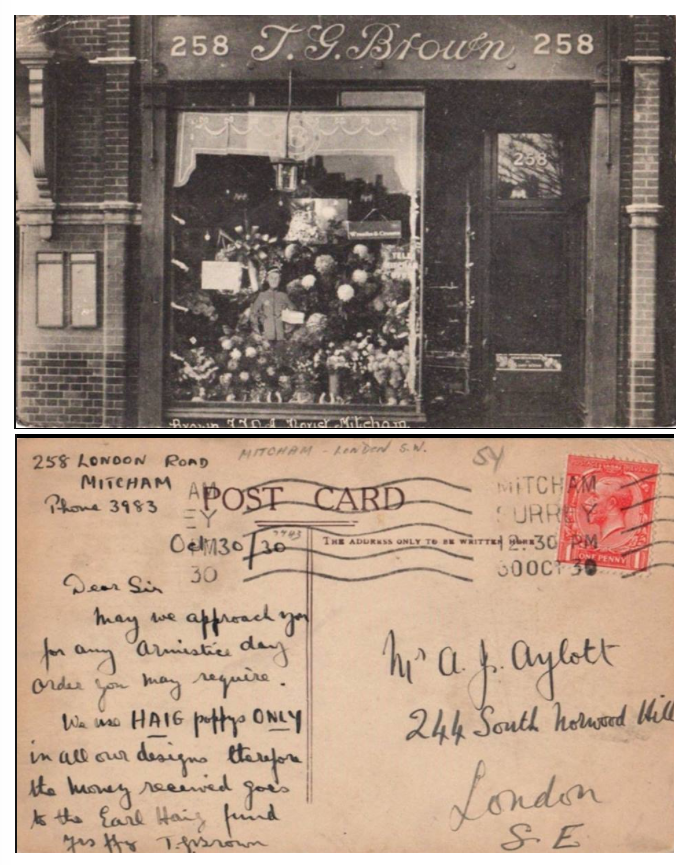 258 T. G. Brown 258
258
TELE
Brown F.T.D.A Florist Mitcham
258 LONDON ROAD
MITCHAM
Phone 3983
MITCHAM - LONDON S.W.
54
POST CARD
THE ADDRESS ONLY TO BE WRITTEN HERE
MITCHAM
SURREY
12.30 PM
30 OCT 30
ONE PENNY
AM
EY
PM
30
Oct 30/30
Dear Sir
May we approach you
for any Armistice day
order you may require.
We use HAIG poppys ONLY
in all our designs therefore
the money received goes
to the Earl Haig fund
Yrs ffy T.G Brown
Mr A. J. Aylott
244 South Norwood Hill
London
S. E